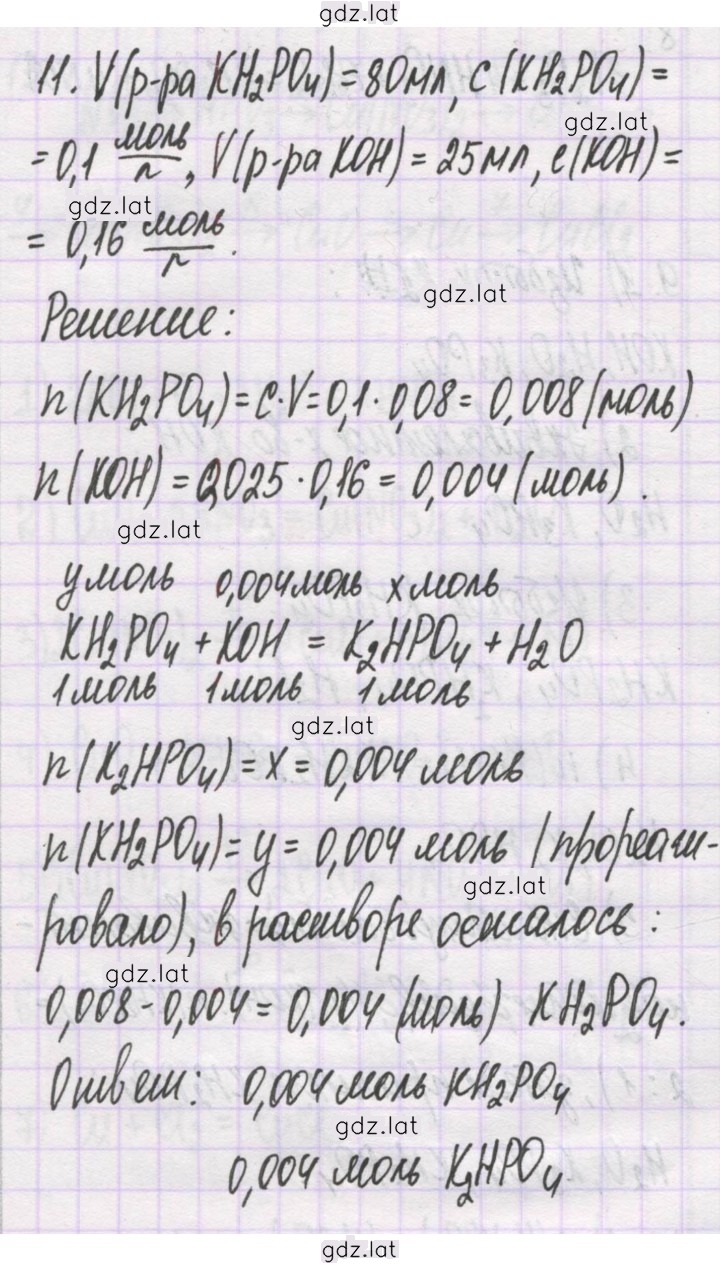 gdz.lat
11. V(р-ра KH₂PO₄) = 80мл, c(KH₂PO₄) =
gdz.lat
= 0,1 моль/л, V(р-ра KOH) = 25мл, c(KOH) =
gdz.lat
= 0,16 моль/л.
gdz.lat
Решение:
n(KH₂PO₄) = c·V = 0,1·0,08 = 0,008 (моль)
n(KOH) = 0,025·0,16 = 0,004 (моль).
gdz.lat
y моль 0,004моль x моль
KH₂PO₄ + KOH = K₂HPO₄ + H₂O
1моль 1моль 1моль
gdz.lat
n(K₂HPO₄) = x = 0,004 моль
n(KH₂PO₄) = y = 0,004 моль (прореаги-
gdz.lat
ровало), в растворе осталось:
gdz.lat
0,008 - 0,004 = 0,004 (моль) KH₂PO₄.
Ответ: 0,004 моль KH₂PO₄
gdz.lat
0,004 моль K₂HPO₄
gdz.lat